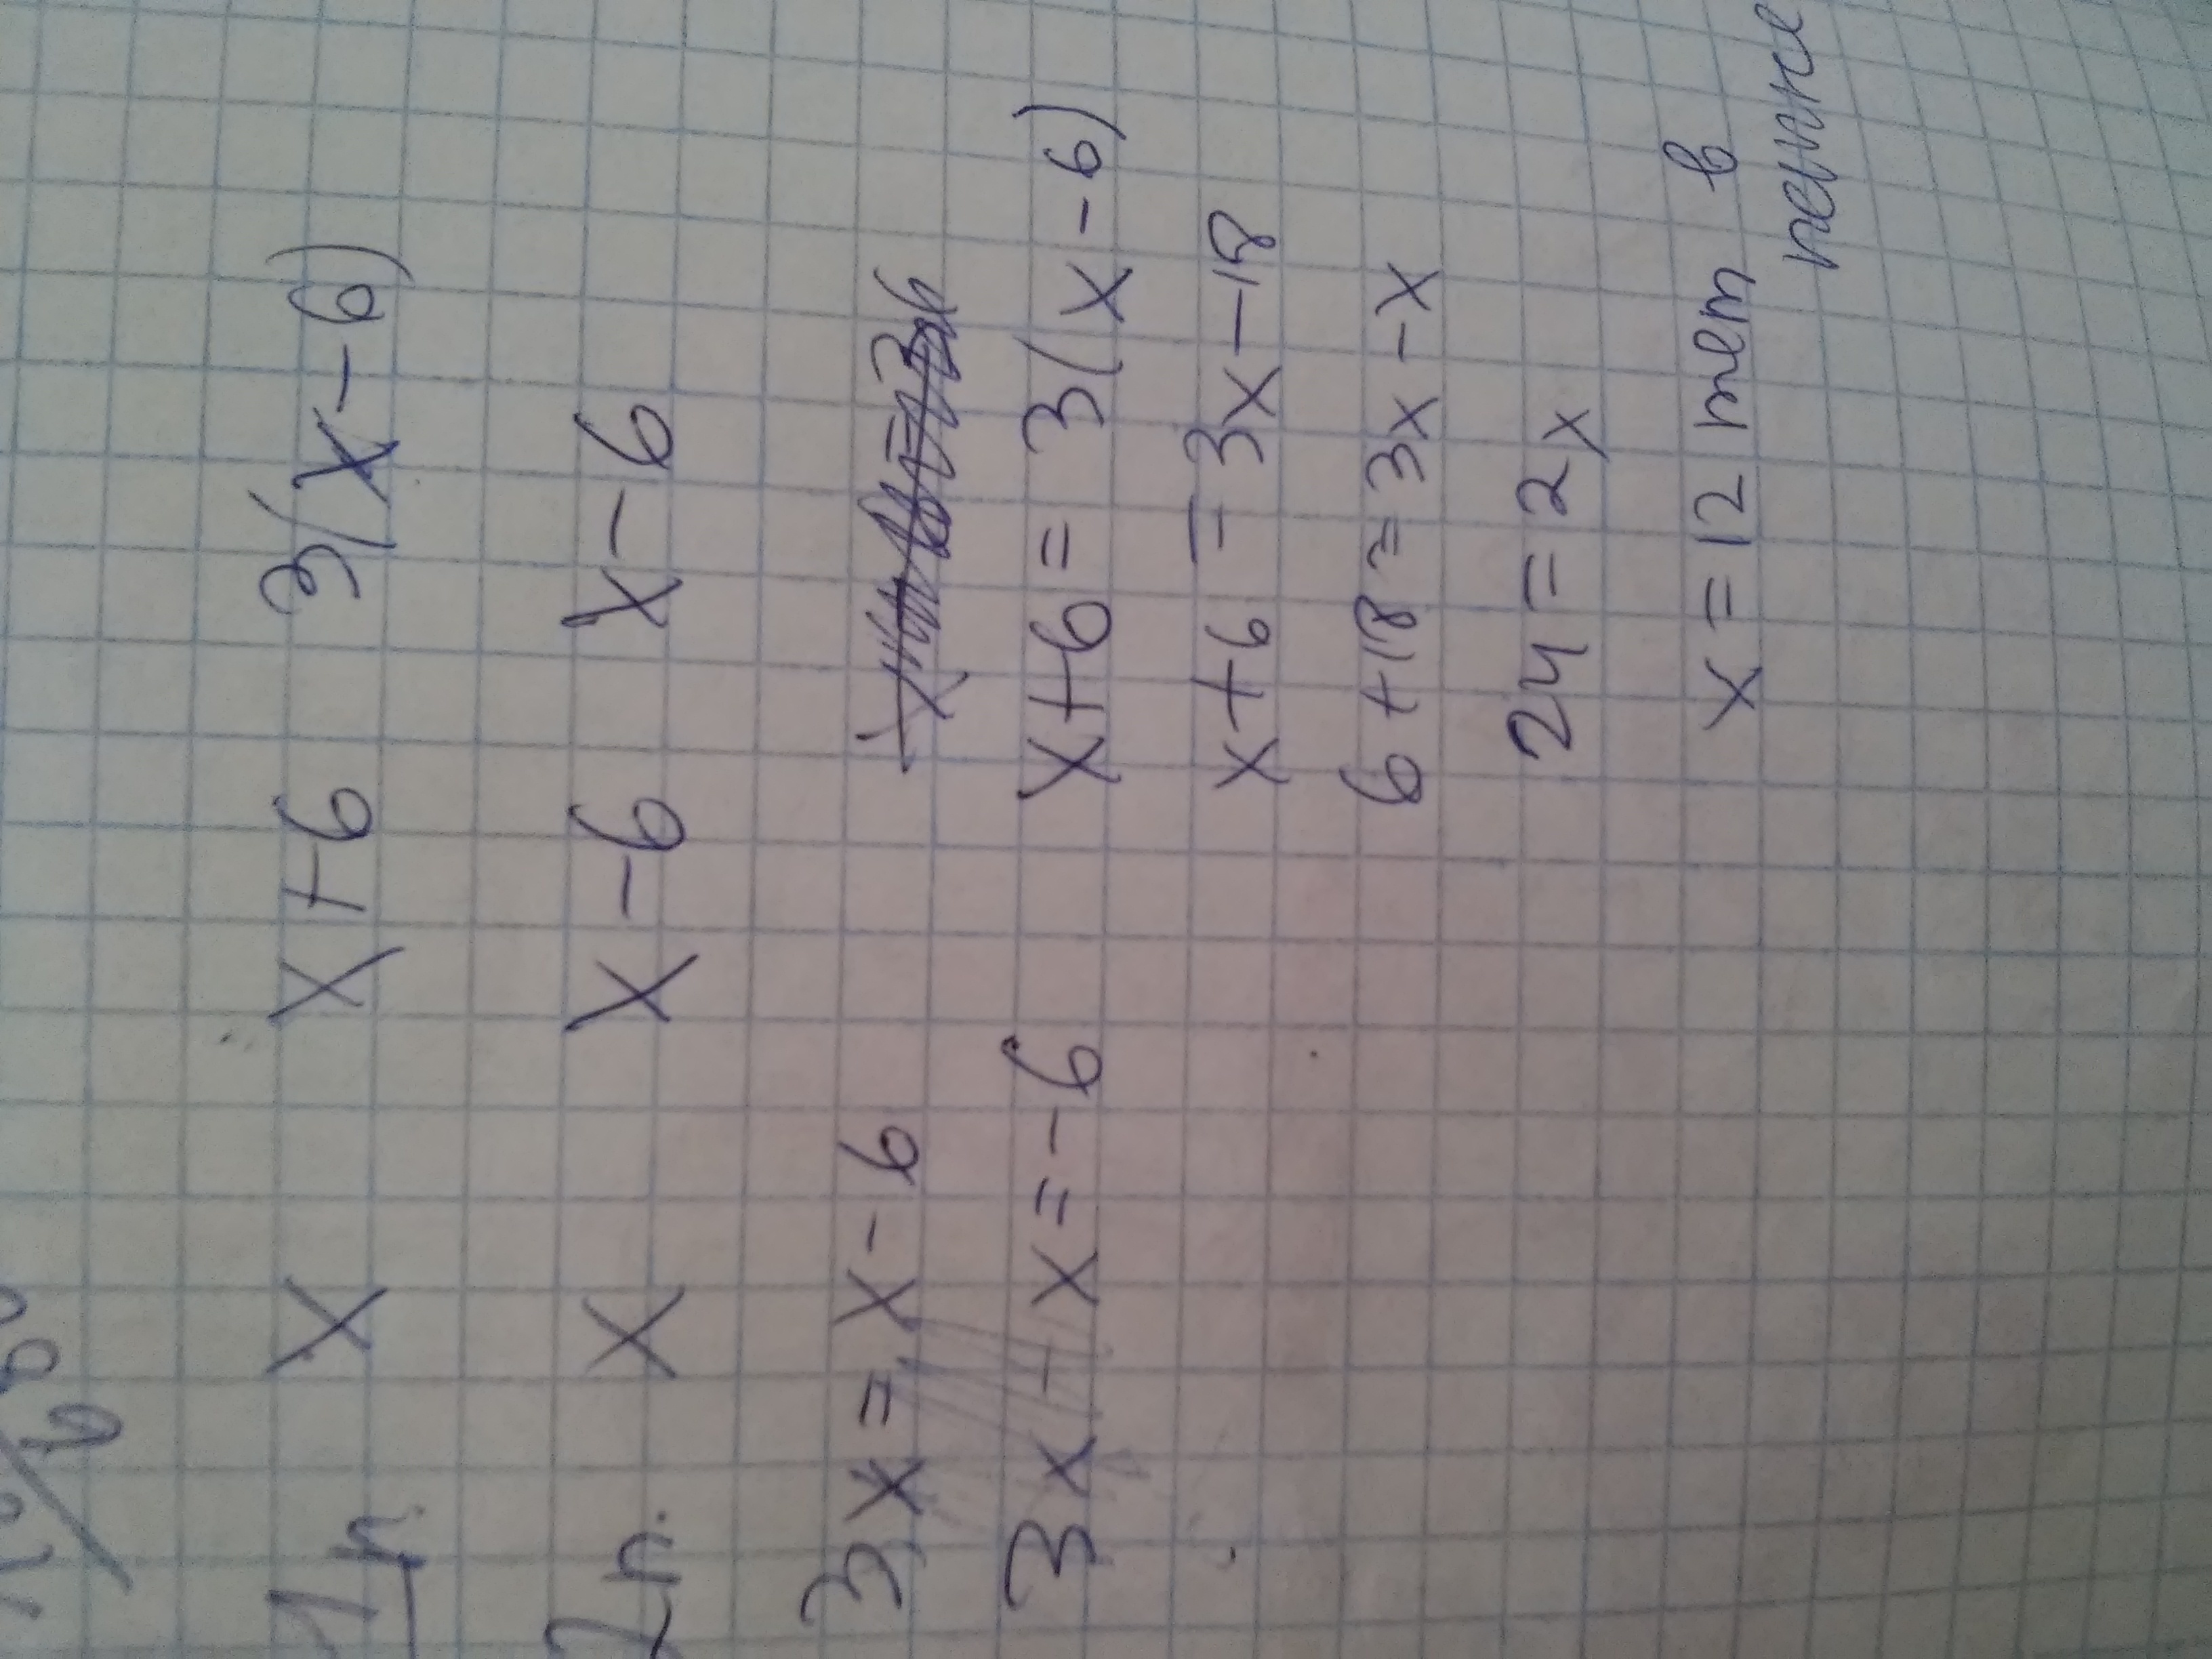 1 п. x x+6 3(x-6)
2 п. x x-6 x-6
3x=x-6
3x-x=-6
x+6= 3(x-6)
x+6=3x-18
6+18=3x-x
24=2x
x=12 тет в